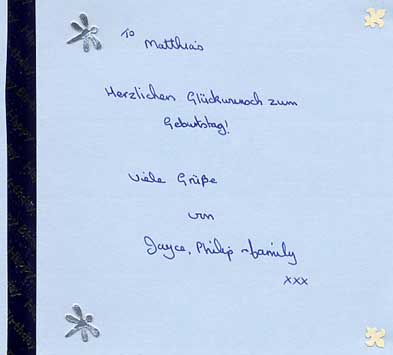 To
Matthias
Herzlichen Glückwunsch zum
Geburtstag!
Viele Grüße
von
Jayce, Philip + family
xxx